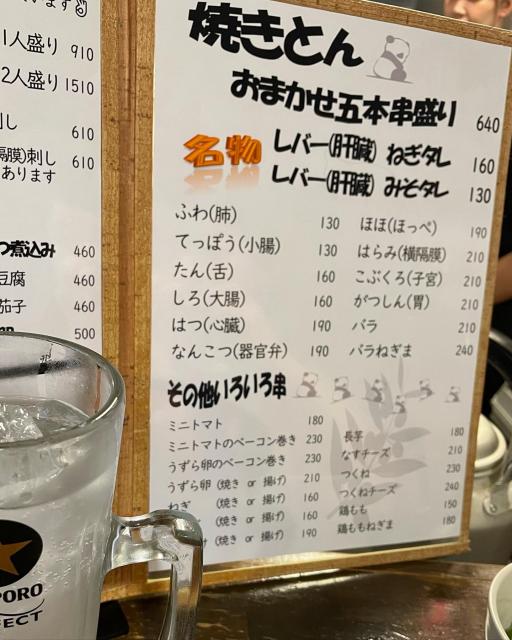 います
1人盛り 910
2人盛り 1510
し 610
隔膜)刺し 610
あります
つ煮込み 460
豆腐 460
茄子 460
500
焼きとん
おまかせ五本串盛り 640
名物
レバー(肝臓) ねぎタレ 160
レバー(肝臓) みそタレ 130
ふわ(肺) 130
てっぽう(小腸) 130
たん(舌) 160
しろ(大腸) 160
はつ(心臓) 190
なんこつ(器官弁) 190
ほほ(ほっぺ) 190
はらみ(横隔膜) 210
こぶくろ(子宮) 210
がつしん(胃) 210
バラ 210
バラねぎま 240
その他いろいろ串
ミニトマト 180
ミニトマトのベーコン巻き 230
うずら卵のベーコン巻き 230
うずら卵 (焼き or 揚げ) 210
ねぎ (焼き or 揚げ) 160
(焼き or 揚げ) 160
(焼き or 揚げ) 190
長芋 180
なすチーズ 210
つくね 230
つくねチーズ 240
鶏もも 150
鶏ももねぎま 180
PORO
FECT